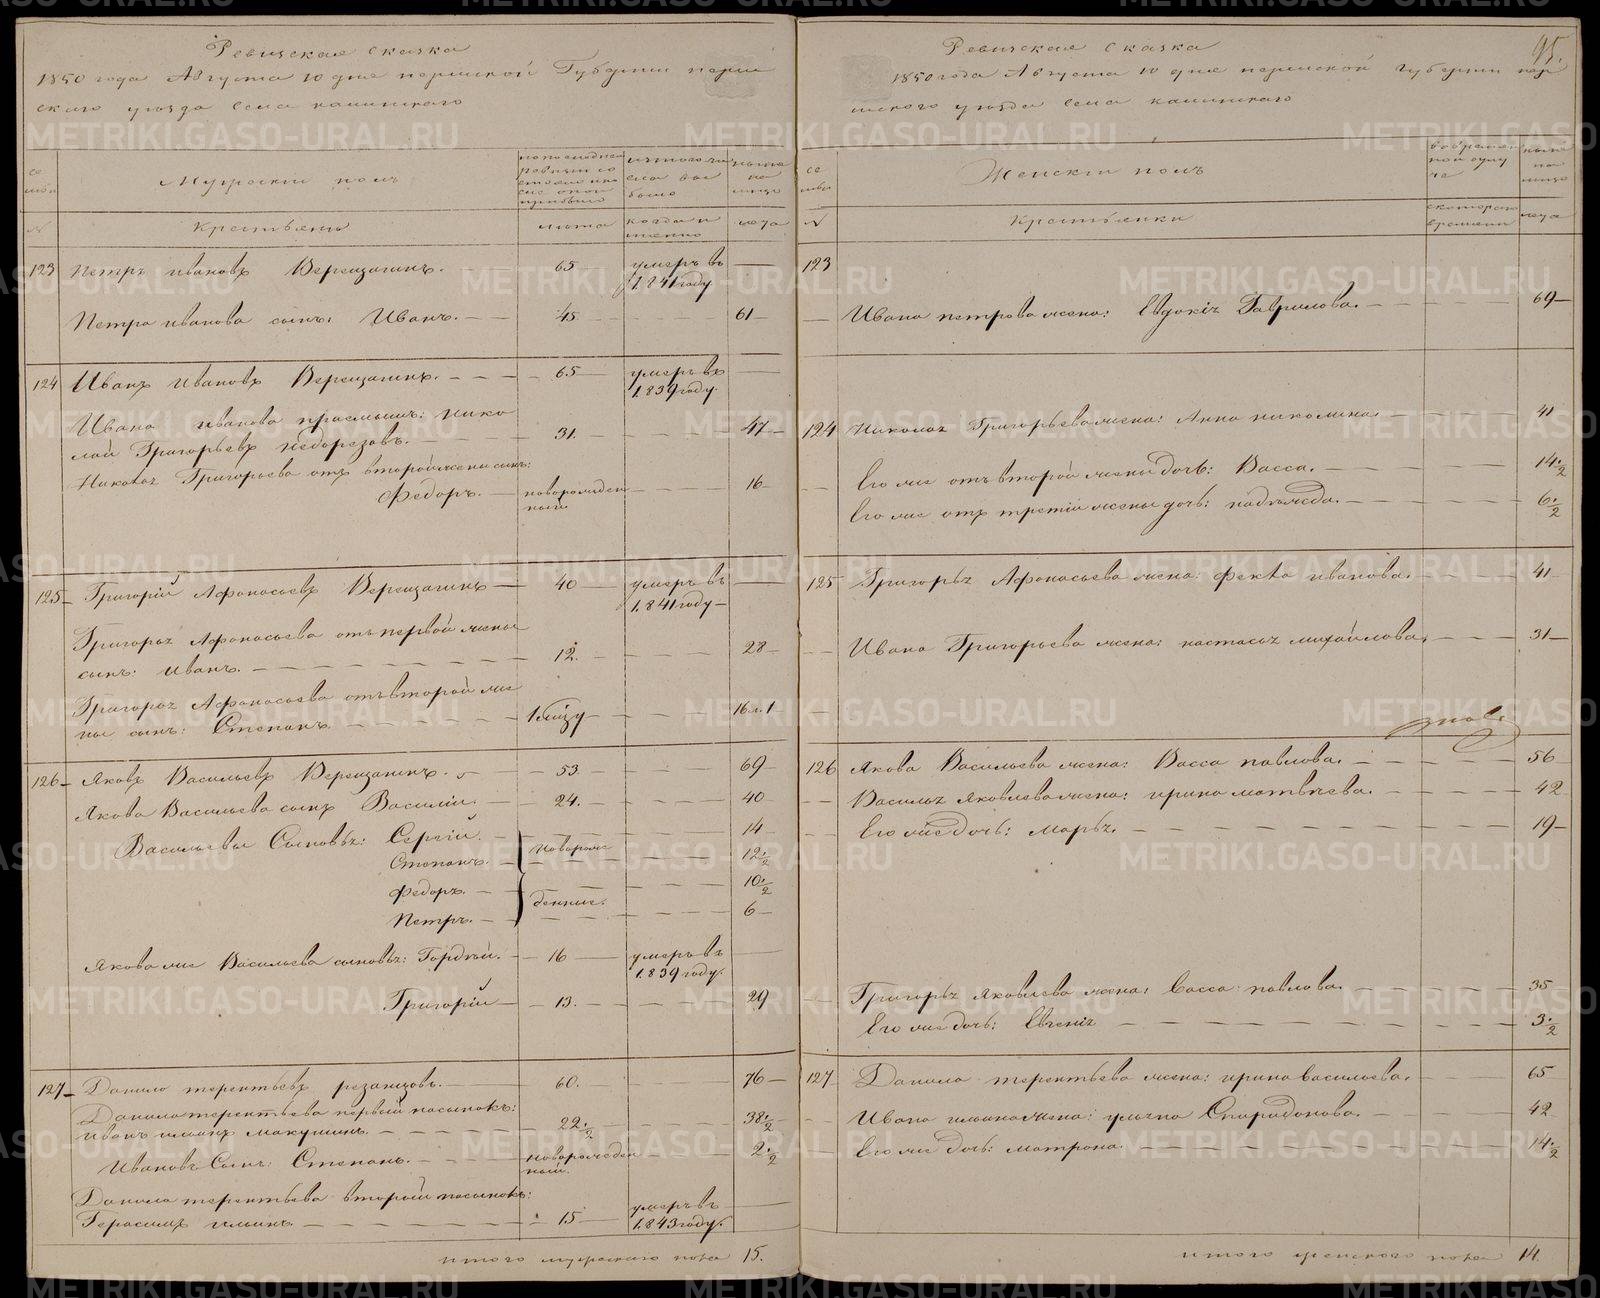 Ревизская сказка
1850 года Августа 10 дня пермской Губернии перм
скаго уезда села калинскаго
се
мьи
Мужеский полъ
по последней
ревизии со
стояло и по
сле оной
прибыло
изъ того чи
сла вы
было
ныне
на
лицо
№
Крестьяне
лета
когда и
именно
лета
123 Петръ ивановъ Верещагинъ. 65 умеръ въ
1841 году
Петра иванова сынъ: Иванъ. 45 61
124 Иванъ ивановъ Верещагинъ. 65 умеръ въ
1839 году.
Ивана иванова приемышъ: Нико
лай Григорьевъ недорезовъ. 31. 47
Николая Григорьева отъ второй жены сынъ:
Федоръ. новорожден 16
ный
125 Григорий Афонасьевъ Верещагинъ 40 умеръ въ
1841 году
Григорья Афонасьева отъ первой жены
сынъ: иванъ. 12. 28
Григорья Афонасьева отъ второй же
ны сынъ: Степанъ. 1 году 16 л. 1
126 Яковъ Васильевъ Верещагинъ. 53. 69
Якова Васильева сынъ Василий. 24. 40
Васильевы Сыновья: Сергий. новорож 14
Степанъ. 12 1/2
Федоръ. денные. 10 1/2
Петръ. 6
Якова же Васильева сыновья: Гордей. 16 умеръ въ
1839 году.
Григорий 13. 29
127 Данило терентьевъ резанцовъ. 60. 76
Данила терентьева первый пасынокъ:
иванъ ильинъ Макушинъ. 22 1/2 38 1/2
Ивановъ Сынъ: Степанъ. новорожден 2 1/2
ный.
Данила терентьева второй пасынокъ:
Герасимъ ильинъ 15 умеръ въ
1843 году.
итого мужескаго пола 15.
95.
Ревизская сказка
1850 года Августа 10 дня пермской губернии пер
мскаго уезда села калинскаго
се
мьи
Женский полъ
во времен
ной отлу
чке
ныне
на
лицо
№
Крестьянки
с котораго
времени
лета
123
Ивана петрова жена: Евдокия Гаврилова. 69
124 Николая Григорьева жена: Анна никонина. 41
Его же отъ второй жены дочь: Васса. 14 1/2
Его же отъ третий жены дочь: надежда. 6 1/2
125 Григорья Афонасьева жена: Фекла иванова. 41
Ивана Григорьева жена: настасья михайлова. 31
126 Якова Васильева жена: Васса павлова. 56
Василья Яковлева жена: ирина матвеева. 42
Его же дочь: марья. 19
Григорья яковлева жена: Васса павлова. 35
Его же дочь: Евгения 3 1/2
127 Данила терентьева жена: ирина васильева. 65
Ивана ильина жена: ульяна Спиридонова. 42
Его же дочь: матрона. 14 1/2
итого женскаго пола 14.
METRIKI.GASO-URAL.RU